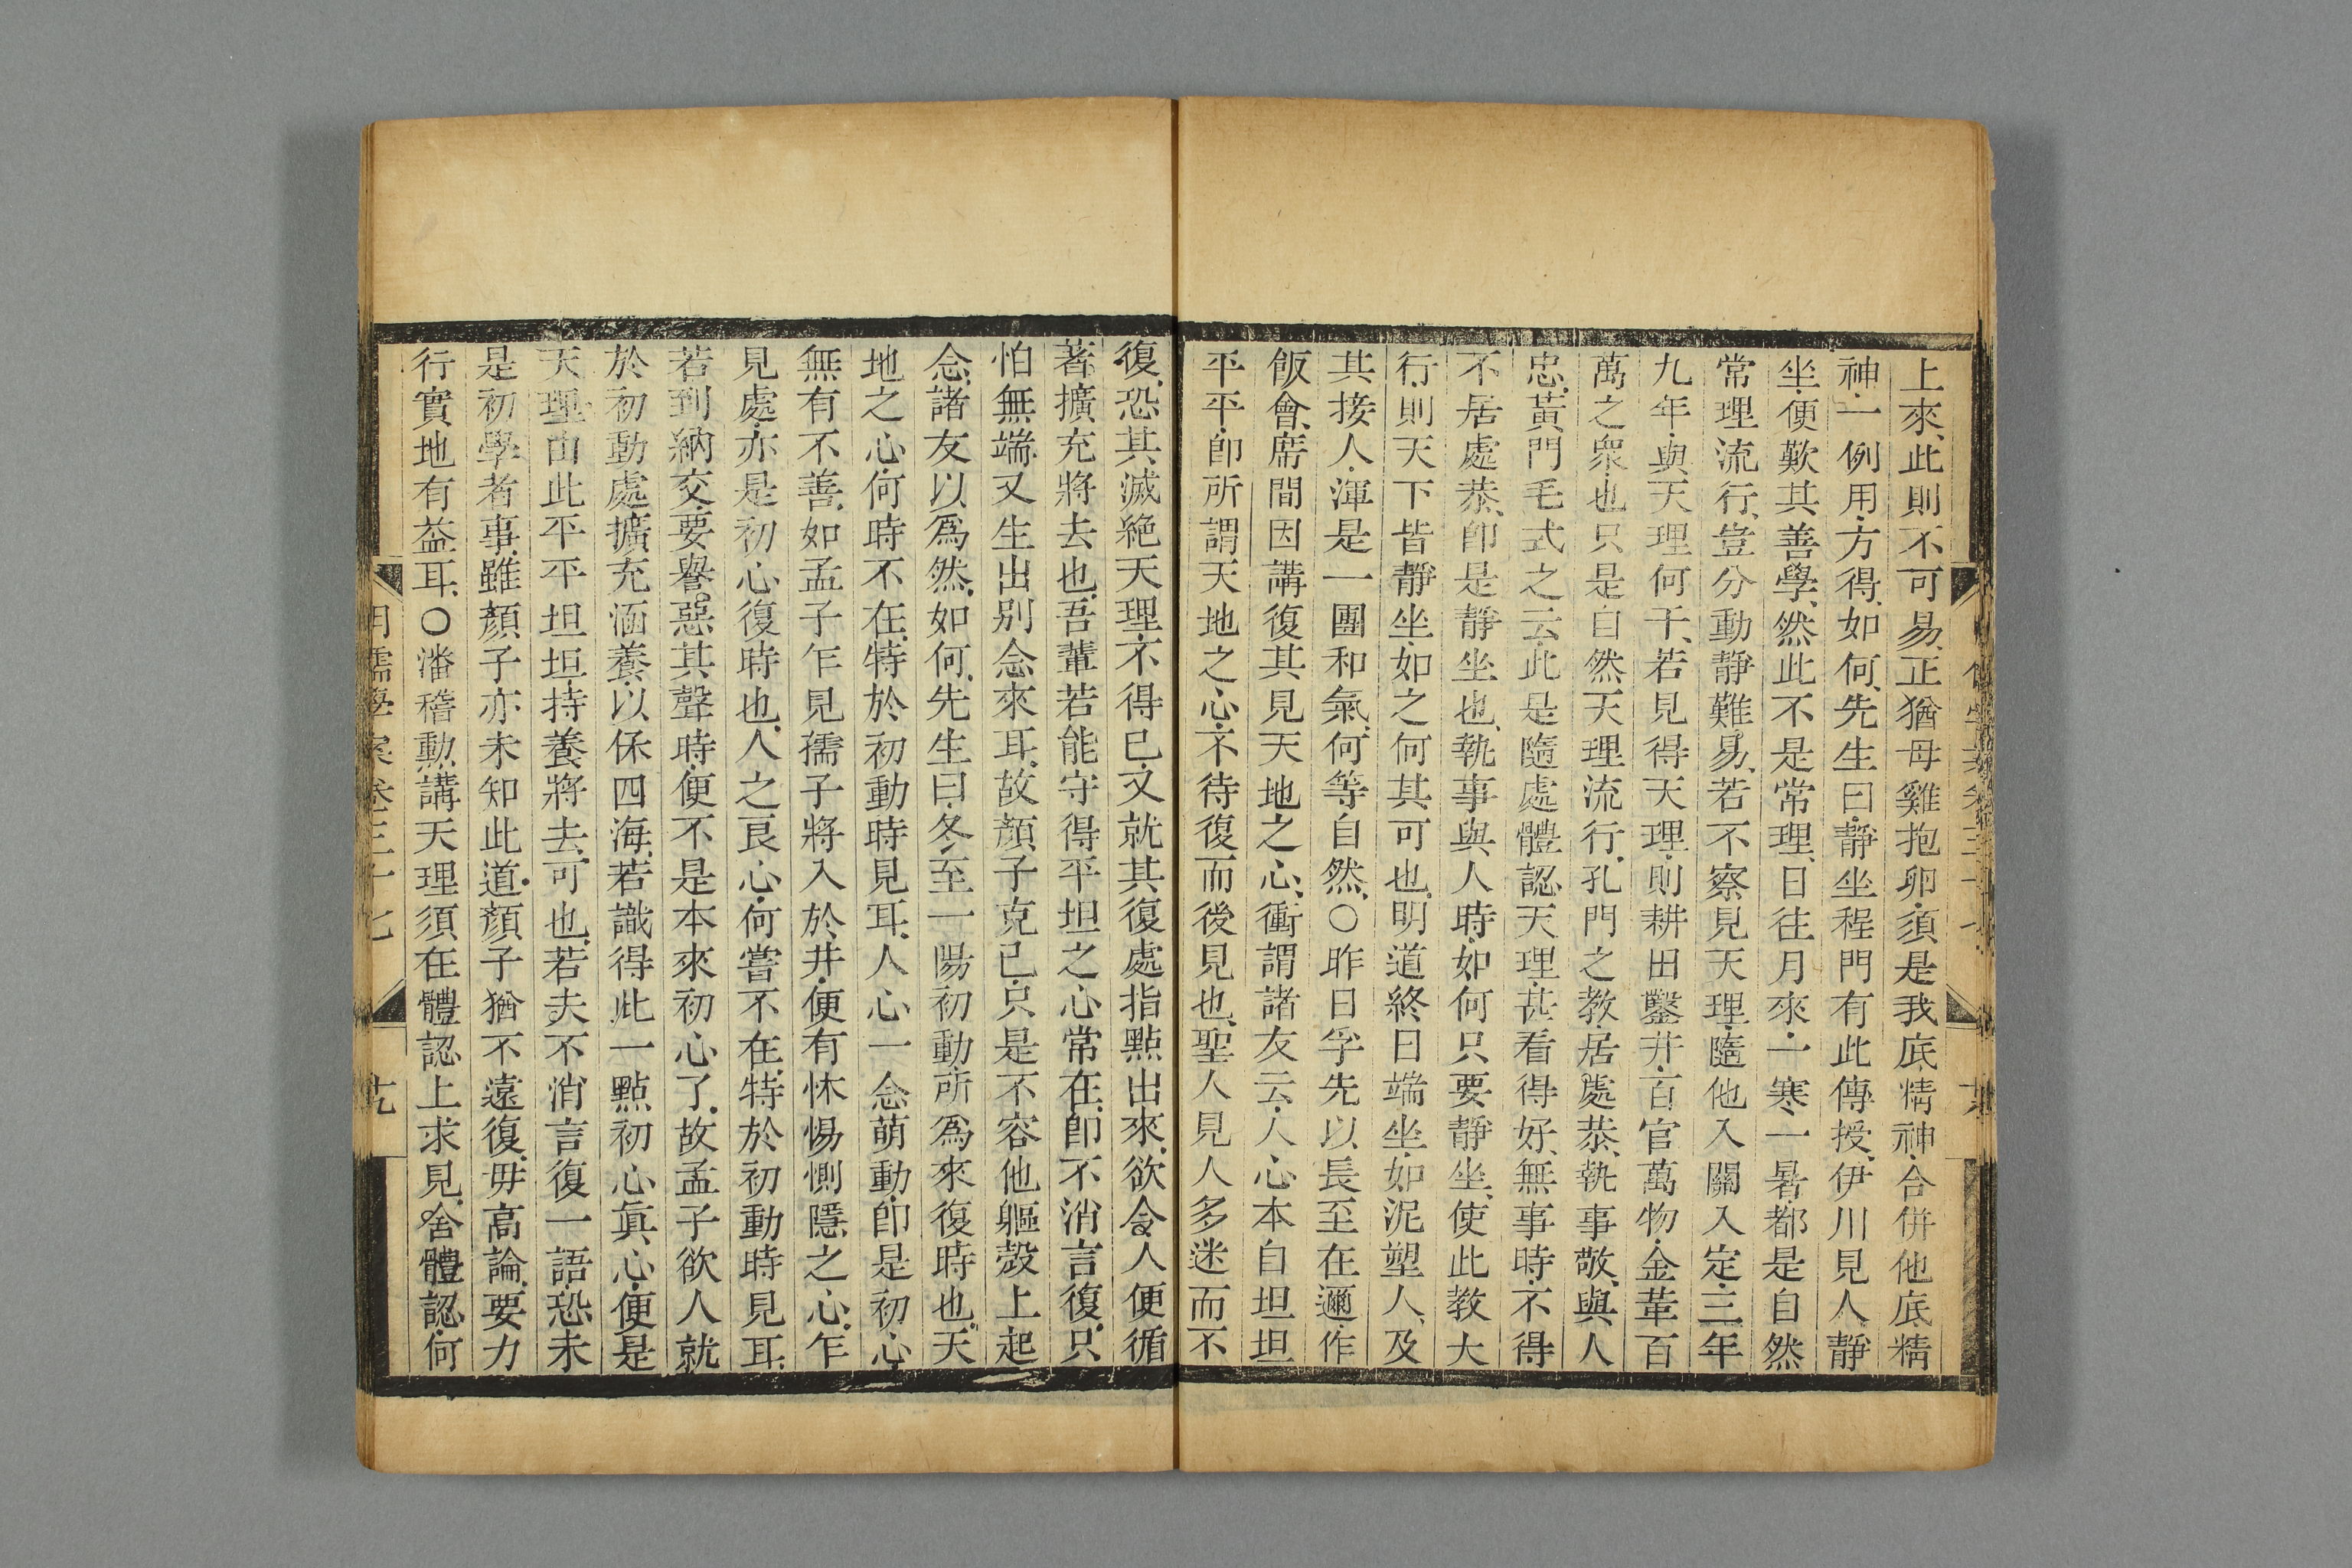 上來、此則不可易、正猶母雞抱卵、須是我底精神合併他底精
神、一例用方得、如何、先生曰、靜坐程門有此傳授、伊川見人靜
坐、便歎其善學、然此不是常理、日往月來、一寒一暑、都是自然
常理流行、豈分動靜難易、若不察見天理、隨他入關入定、三年
九年、與天理何干、若見得天理、則耕田鑿井、百官萬物、金革百
萬之衆也、只是自然天理流行、孔門之教、居處恭、執事敬、與人
忠、黃門毛式之云、此是隨處體認天理、甚看得好、無事時、不得
不居處恭、即是靜坐也、執事與人時、如何只要靜坐、使此教大
行、則天下皆靜坐、如之何其可也、明道終日端坐、如泥塑人、及
其接人、渾是一團和氣、何等自然、〇昨日孚先以長至在邇、作
飯會、席間因講復其見天地之心、衝謂諸友云、人心本自坦坦
平平、即所謂天地之心、不待復而後見也、聖人見人多迷而不
復、恐其滅絕天理、不得已、又就其復處指點出來、欲令人便循
著擴充將去也、吾輩若能守得平坦之心常在、即不消言復、只
怕無端又生出別念來耳、故顏子克己、只是不容他軀殼上起
念、諸友以爲然、如何、先生曰、冬至一陽初動、所爲來復時也、天
地之心、何時不在、特於初動時見耳、人心一念萌動、即是初心、
無有不善、如孟子乍見孺子將入於井、便有怵惕惻隱之心、乍
見處亦是初心復時也、人之良心、何嘗不在、特於初動時見耳、
若到納交要譽、惡其聲時、便不是本來初心了、故孟子欲人就
於初動處擴充涵養、以保四海、若識得此一點初心眞心、便是
天理、由此平平坦坦、持養將去、可也、若夫不消言復一語、恐未
是初學者事、雖顏子亦未知此道、顏子猶不遠復、毋高論、要力
行實地有益耳、〇潘稽勳講天理須在體認上求見、舍體認、何
明儒學案卷三十七